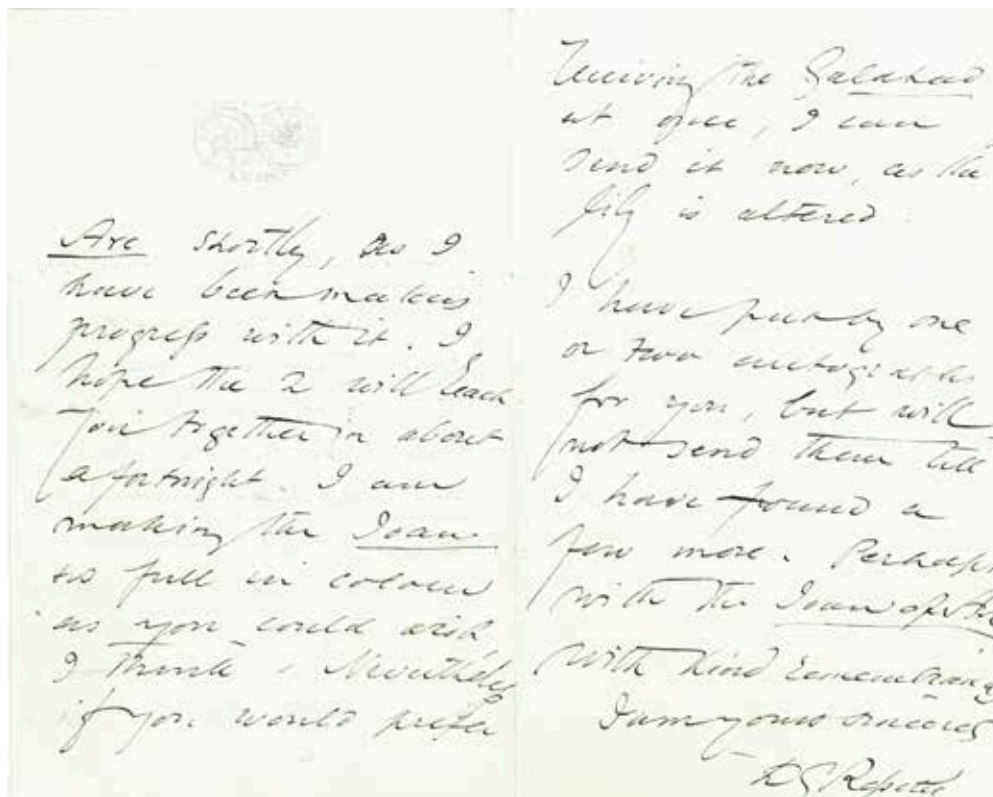 Arc shortly, as I
have been making
progress with it. I
hope the 2 will reach
you together in about
a fortnight. I am
making the Joan
as full in colour
as you could wish
I think. Nevertheless
if you would prefer
receiving the Galahad
at once, I can
send it now, as the
lily is altered.
I have put by one
or two autographs
for you, but will
not send them till
I have found a
few more. Perhaps
with the Joan of
With kind remembrances
I am yours sincerely
D G Rossetti